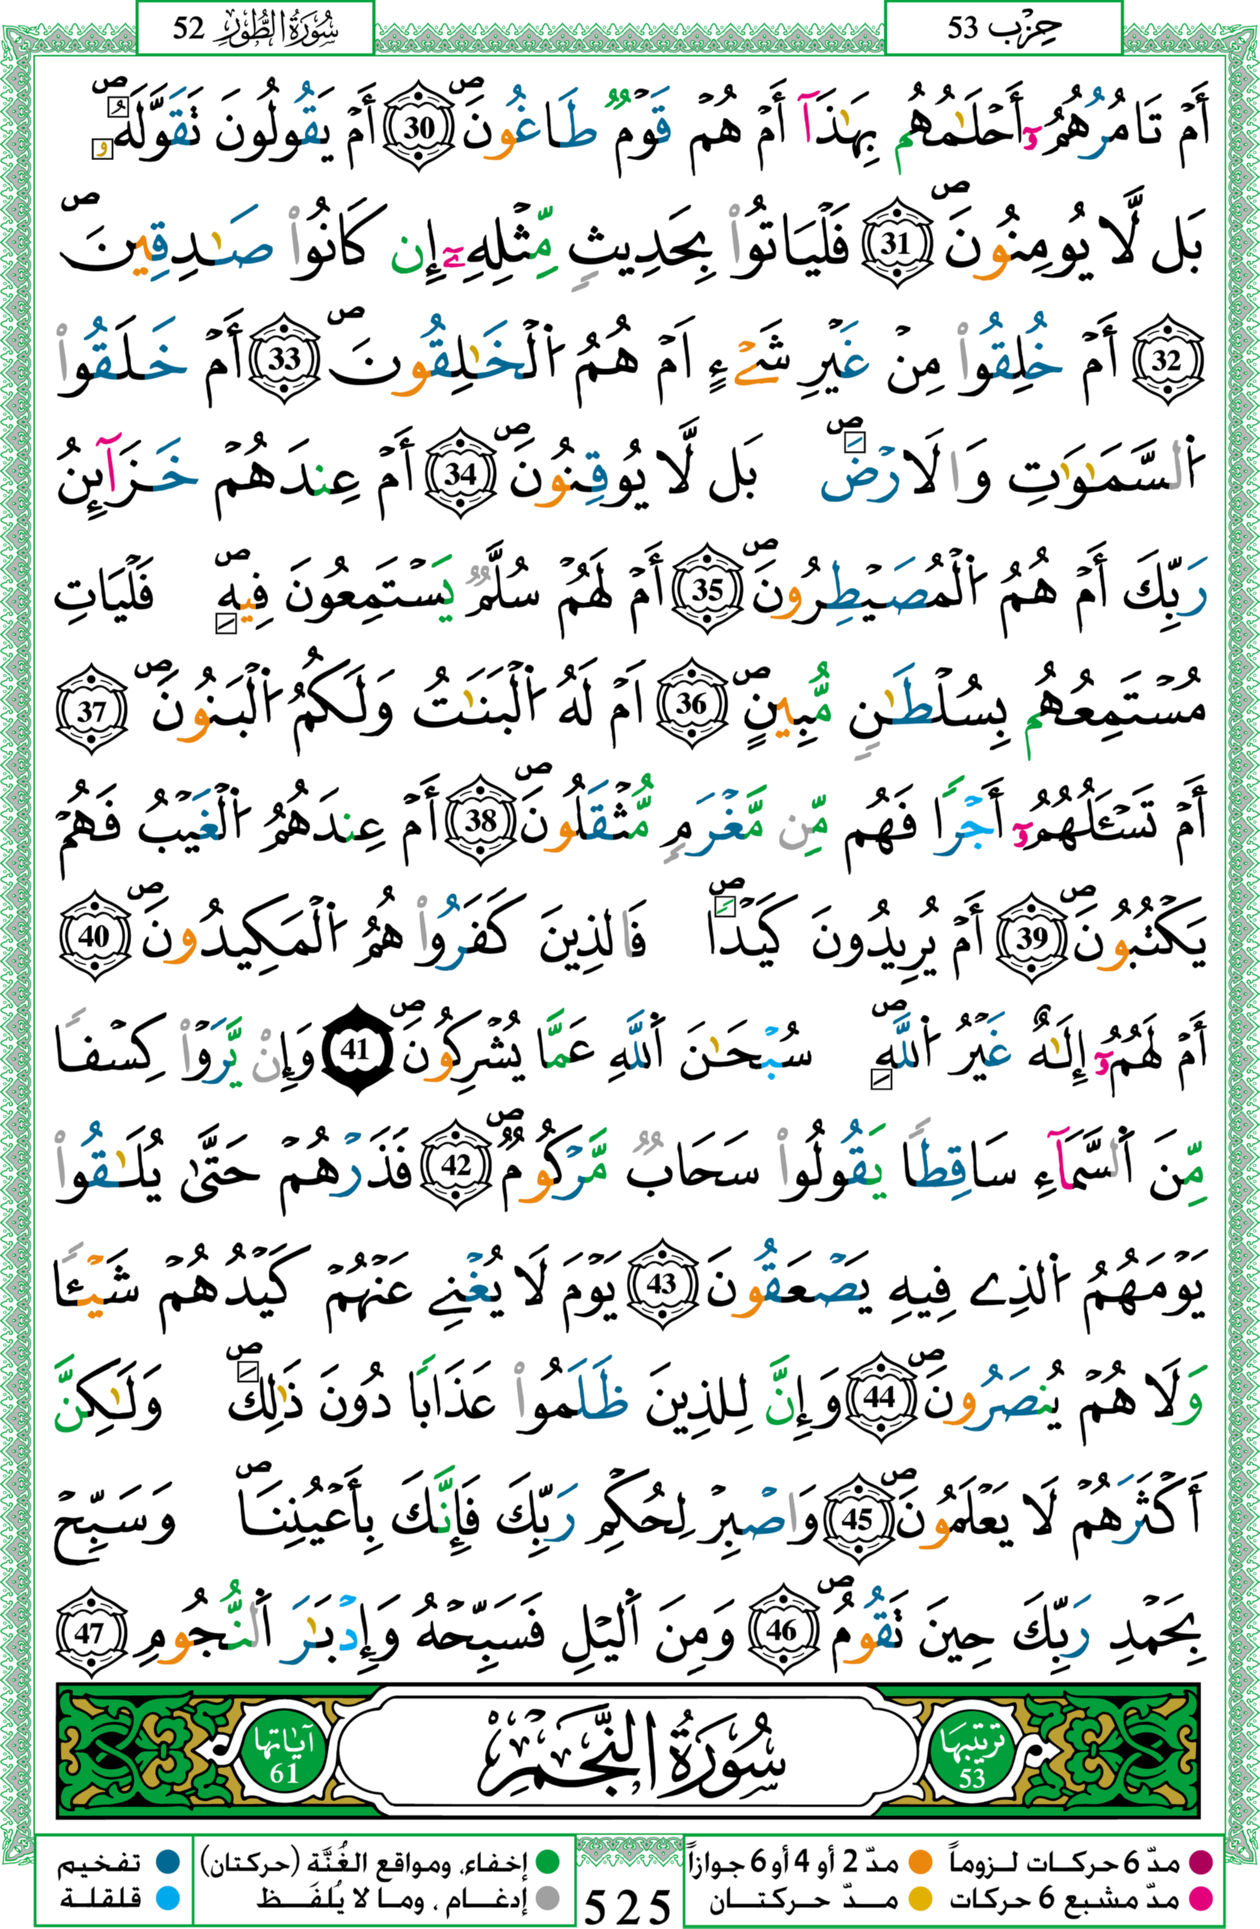 سُورَةُ الطُّورِ 52
حِزْب 53
أَمْ تَامُرُهُمُۥٓ أَحْلَٰمُهُم بِهَٰذَآ أَمْ هُمْ قَوْمٞ طَاغُونَۖ 30 أَمْ يَقُولُونَ تَقَوَّلَهُۥۖ
بَل لَّا يُومِنُونَۖ 31 فَلْيَاتُواْ بِحَدِيثٖ مِّثْلِهِۦٓ إِن كَانُواْ صَٰدِقِينَۖ
32 أَمْ خُلِقُواْ مِنْ غَيْرِ شَےْءٍ اَمْ هُمُ اُ۬لْخَٰلِقُونَۖ 33 أَمْ خَلَقُواْ
اُ۬لسَّمَٰوَٰتِ وَالَارْضَۖ بَل لَّا يُوقِنُونَۖ 34 أَمْ عِندَهُمْ خَزَآئِنُ
رَبِّكَ أَمْ هُمُ اُ۬لْمُصَيْطِرُونَۖ 35 أَمْ لَهُمْ سُلَّمٞ يَسْتَمِعُونَ فِيهِۖ فَلْيَاتِ
مُسْتَمِعُهُم بِسُلْطَٰنٖ مُّبِينٍۖ 36 اَمْ لَهُ اُ۬لْبَنَٰتُ وَلَكُمُ اُ۬لْبَنُونَۖ 37
أَمْ تَسْـَٔلُهُمُۥٓ أَجْرٗا فَهُم مِّن مَّغْرَمٖ مُّثْقَلُونَۖ 38 أَمْ عِندَهُمُ اُ۬لْغَيْبُ فَهُمْ
يَكْتُبُونَۖ 39 أَمْ يُرِيدُونَ كَيْداٗۖ فَالذِينَ كَفَرُواْ هُمُ اُ۬لْمَكِيدُونَۖ 40
أَمْ لَهُمُۥٓ إِلَٰهٌ غَيْرُ اُ۬للَّهِۖ سُبْحَٰنَ اَ۬للَّهِ عَمَّا يُشْرِكُونَۖ 41 وَإِنْ يَّرَوْاْ كِسْفاٗ
مِّنَ اَ۬لسَّمَآءِ سَاقِطاٗ يَقُولُواْ سَحَابٞ مَّرْكُومٞۖ 42 فَذَرْهُمْ حَتَّىٰ يُلَٰقُواْ
يَوْمَهُمُ اُ۬لذِے فِيهِ يَصْعَقُونَ 43 يَوْمَ لَا يُغْنِے عَنْهُمْ كَيْدُهُمْ شَيْـٔاٗ
وَلَا هُمْ يُنصَرُونَۖ 44 وَإِنَّ لِلذِينَ ظَلَمُواْ عَذَاباٗ دُونَ ذَٰلِكَۖ وَلَٰكِنَّ
أَكْثَرَهُمْ لَا يَعْلَمُونَۖ 45 وَاصْبِرْ لِحُكْمِ رَبِّكَ فَإِنَّكَ بِأَعْيُنِنَاۖ وَسَبِّحْ
بِحَمْدِ رَبِّكَ حِينَ تَقُومُۖ 46 وَمِنَ اَ۬ليْلِ فَسَبِّحْهُ وَإِدْبَٰرَ اَ۬لنُّجُومِ 47
ترتيبها 53
سُورَةُ النَّجْمِ
آياتها 61
مدّ 6 حركات لـزوماً
مدّ 2 أو 4 أو 6 جوازاً
إخفاء، ومواقع الغُنَّة (حركتان)
تفخيم
مدّ مشبع 6 حركات
مدّ حركتـان
إدغـام ، ومـا لا يُلفَـظ
قلقلة
525